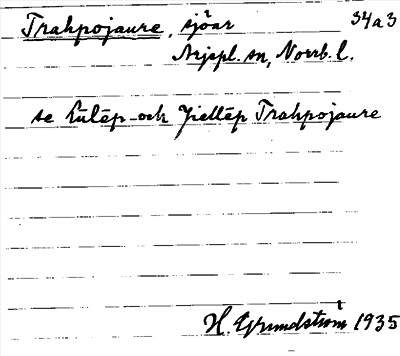 Trakpojaure, sjöar 34a3
Arjepl. sn, Norrb. l.
se Lulēp- och Jiellēp Trakpojaure
H. Grundström 1935